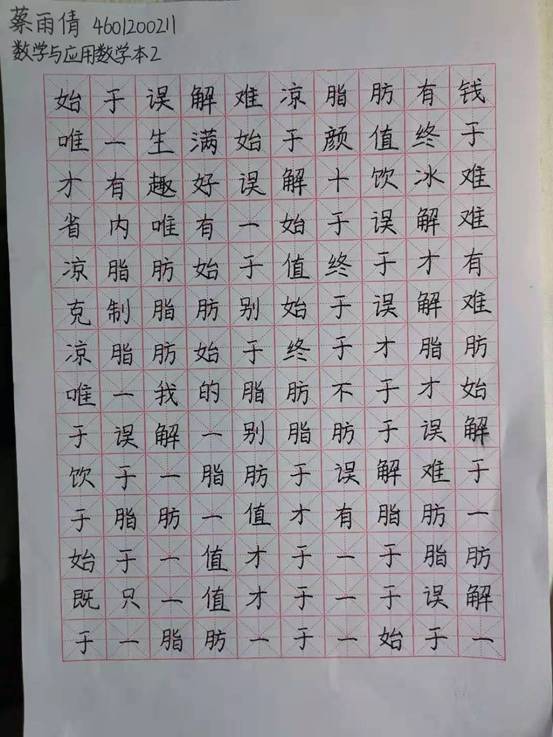 蔡雨倩 4601200211
数学与应用数学本2
始于误解难凉脂肪有钱
唯一生满始于颜值终于
才有趣好误解十饮冰难
省内唯有一始于误解难
凉脂肪始于值终于才有
克制脂肪别始于误解难
凉脂肪始于终于才脂肪
唯一我的脂肪不于才始
于误解一别脂肪于误解
饮于一脂肪于误解难于
于脂肪一值才有脂肪一
始于一值才于一于脂肪
既只一值才于一于误解
于一脂肪一于一始于一